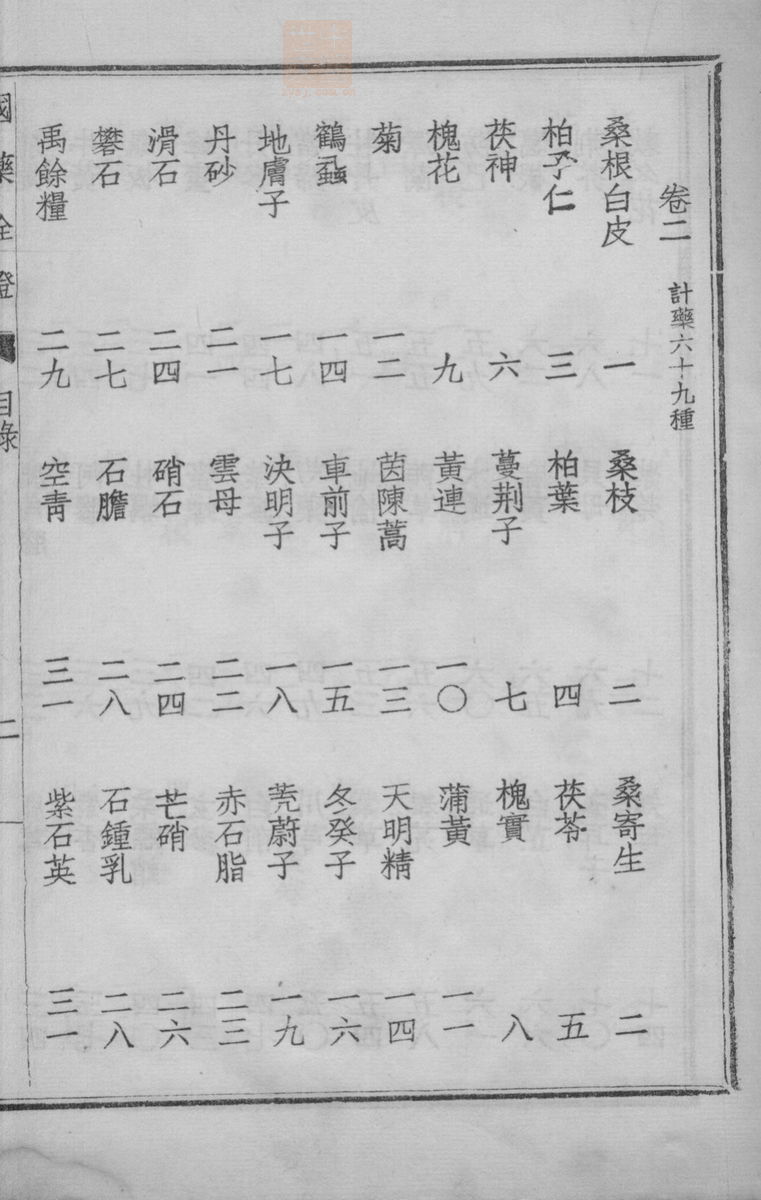 卷二 計藥六十九種
桑根白皮 一 桑枝 二 桑寄生 二
柏子仁 三 柏葉 四 茯苓 五
茯神 六 蔓荆子 七 槐實 八
槐花 九 黃連 一〇 蒲黃 一一
菊 一二 茵陳蒿 一三 天明精 一四
鶴蝨 一四 車前子 一五 冬癸子 一六
地膚子 一七 決明子 一八 茺蔚子 一九
丹砂 二一 雲母 二二 赤石脂 二三
滑石 二四 硝石 二四 芒硝 二六
礬石 二七 石膽 二八 石鍾乳 二八
禹餘糧 二九 空青 三一 紫石英 三一
國藥全證 目錄 二